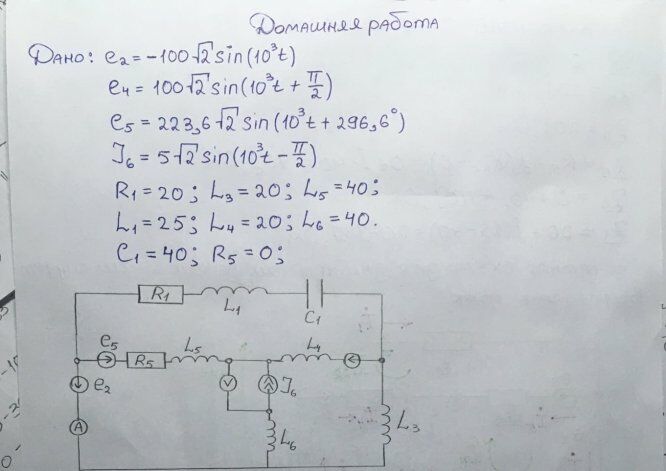 Домашняя работа
Дано: e₂ = -100√2 sin(10³t)
e₄ = 100√2 sin(10³t + π/2)
e₅ = 223,6√2 sin(10³t + 296,6°)
J₆ = 5√2 sin(10³t - π/2)
R₁ = 20 ; L₃ = 20; L₅ = 40;
L₁ = 25; L₄ = 20; L₆ = 40.
C₁ = 40; R₅ = 0;
R₁
L₁
C₁
e₅
R₅
L₅
L₄
e₂
V
J₆
A
L₆
L₃